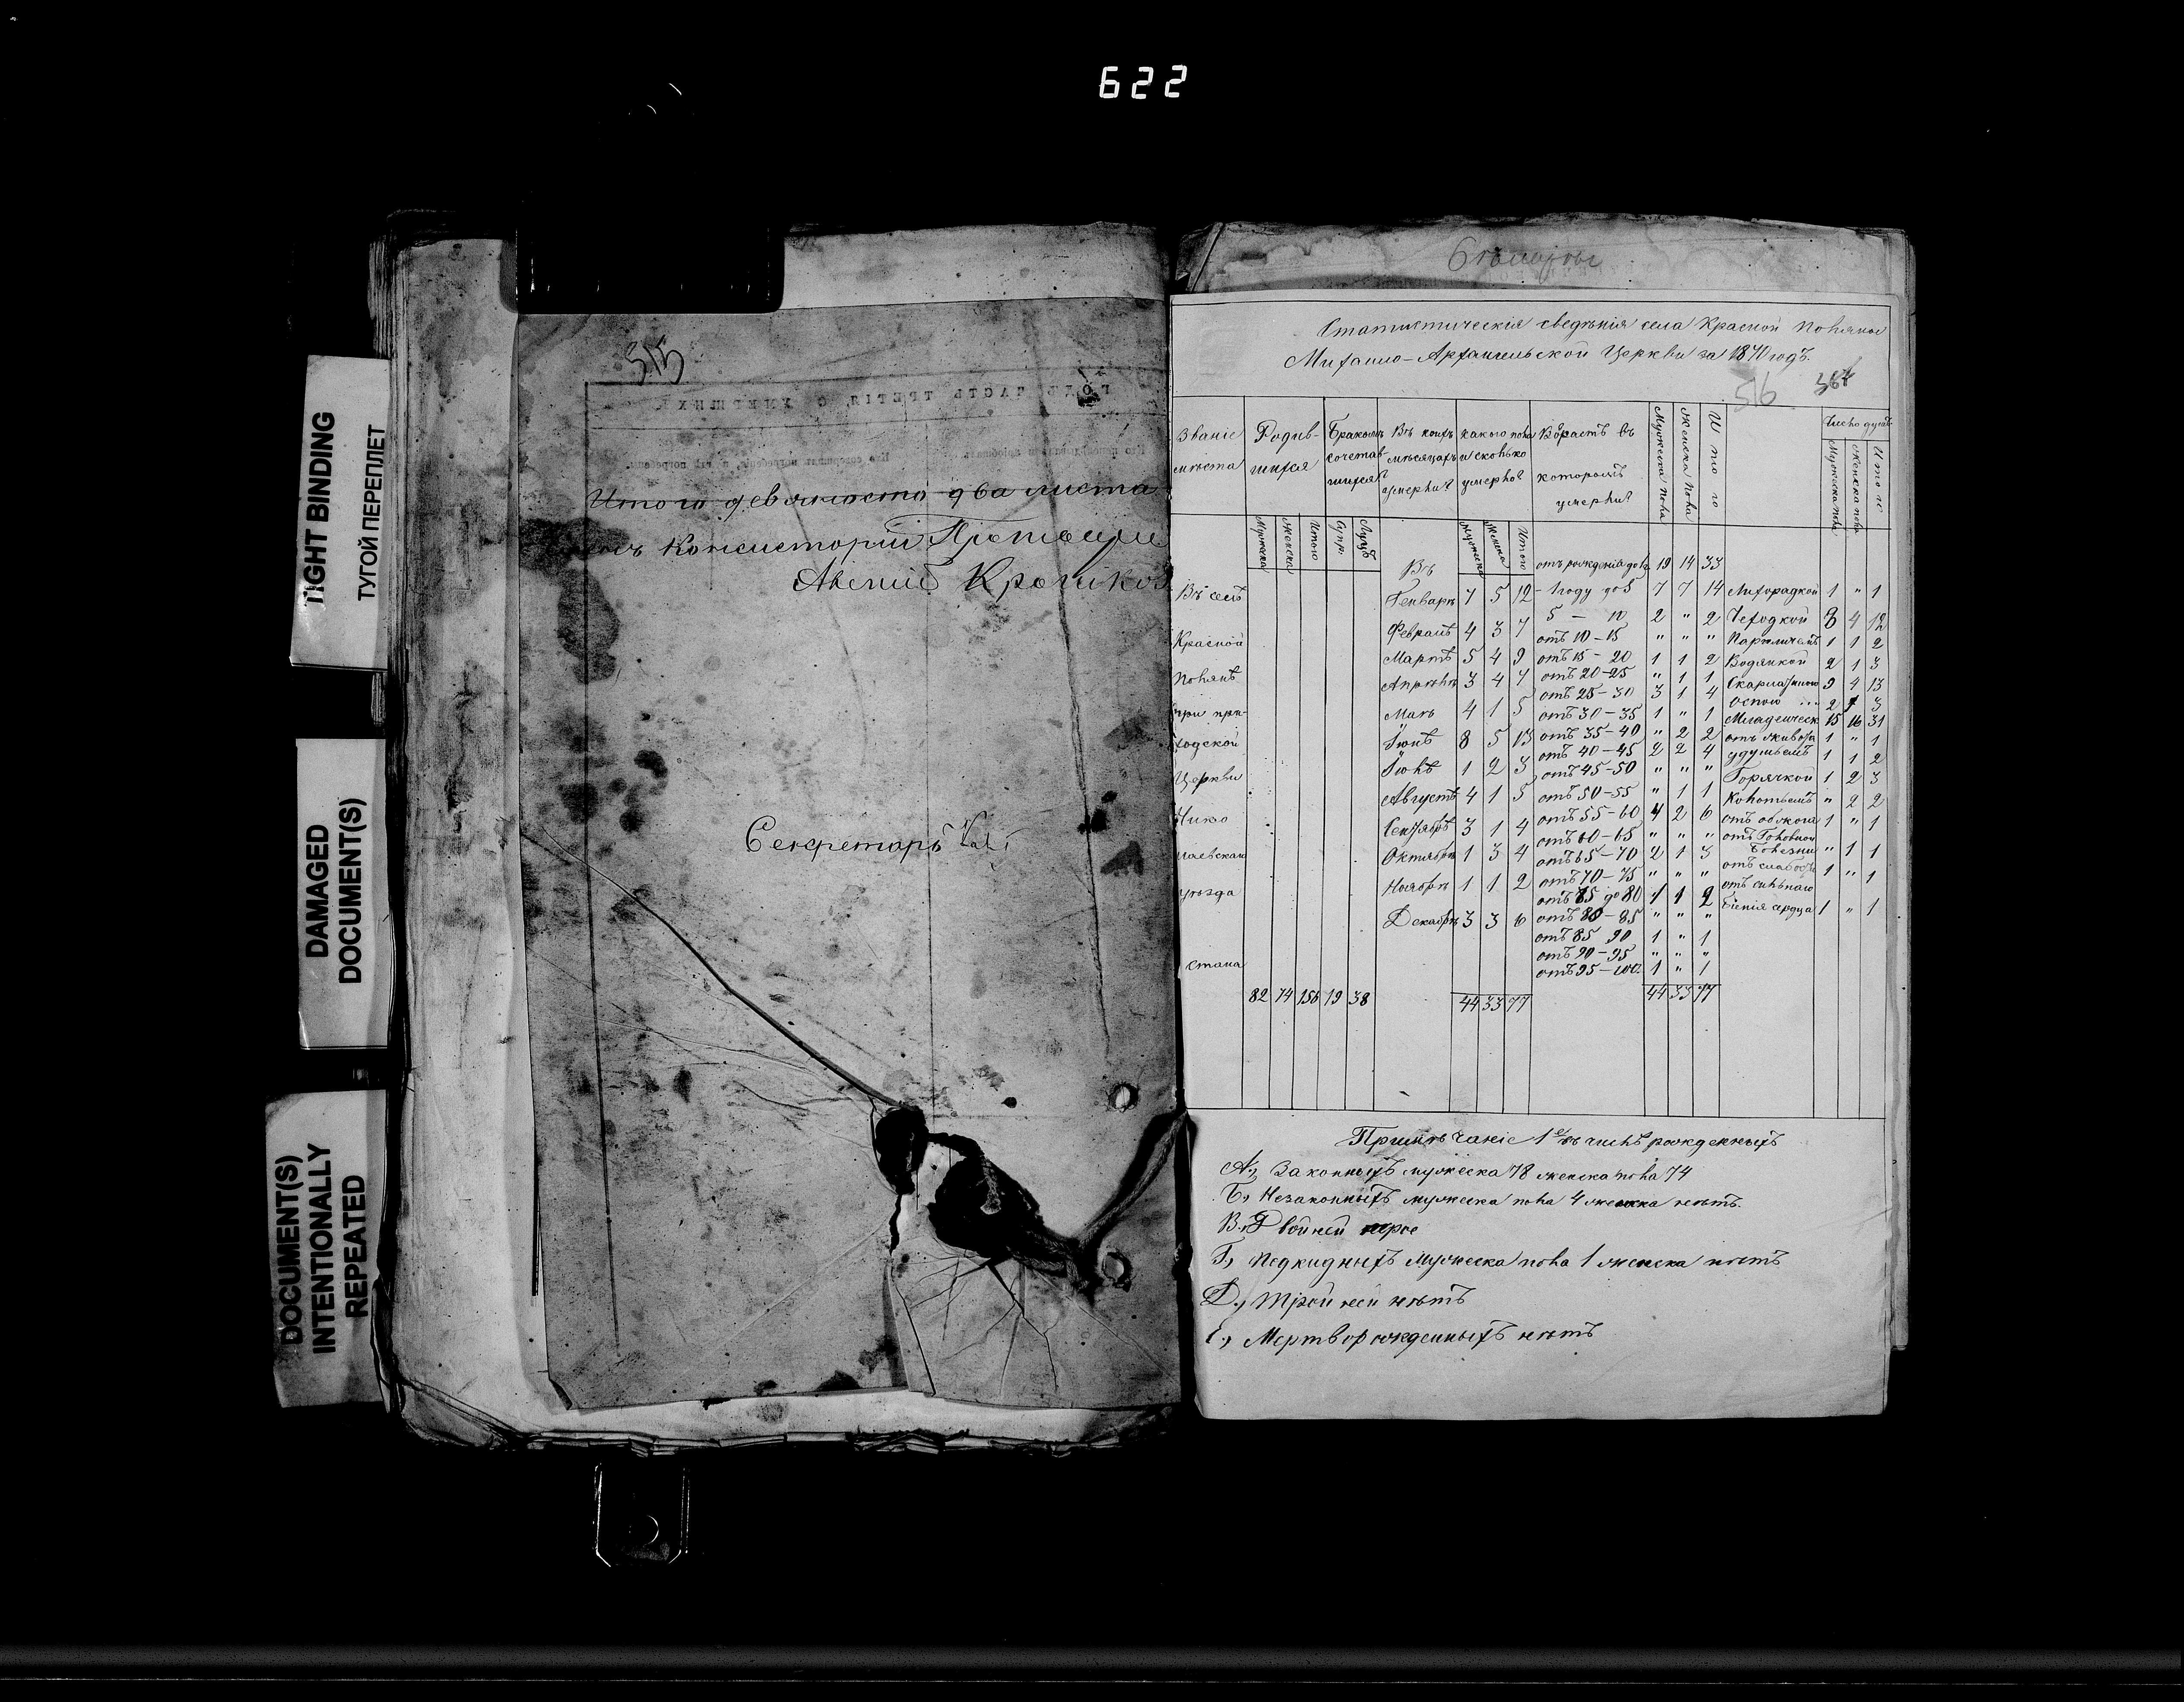 622
TIGHT BINDING
ТУГОЙ ПЕРЕПЛЕТ
DAMAGED
DOCUMENT(S)
DOCUMENT(S)
INTENTIONALLY
REPEATED
515
ГОДЪ, ЧАСТЬ ТРЕТІЯ, О УМЕРШИХЪ.
Итого девяносто два листа
Консисторіи
Секретарь
Статистическія сведѣнія села Красной Поляны
Михаило-Архангельской Церкви за 1870 годъ.
516
Званіе мѣста
Родив-шихся
Бракомъ сочетав-шихся
Въ коихъ мѣсяцахъ умерли?
какого пола и сколько умерло?
Возрастъ въ которомъ умерли?
Мужеска пола
Женска пола
Итого
Число душъ
Мужеска пола
Женска пола
Итого
Мужеска
Женска
Итого
Супр.
Лицъ
Мужеска
Женска
Итого
Въ селѣ
Красной
Полянѣ
при при-
ходской
Церкви
Нико
лаевскаго
уѣзда
стана
82 74 156 19 38
Въ
Генварѣ 7 5 12
Февралѣ 4 3 7
Мартѣ 5 4 9
Апрѣлѣ 3 4 7
Маѣ 4 1 5
Іюнѣ 8 5 13
Іюлѣ 1 2 3
Августѣ 4 1 5
Сентябрѣ 3 1 4
Октябрѣ 1 3 4
Ноябрѣ 1 1 2
Декабрѣ 3 3 6
44 33 77
отъ рожденія до 1 19 14 33
1 году до 5 7 7 14
5 — 10 2 " 2
отъ 10 – 15 " " "
отъ 15 – 20 1 1 2
отъ 20 – 25 " 1 1
отъ 25 – 30 3 1 4
отъ 30 – 35 1 " 1
отъ 35 – 40 " 2 2
отъ 40 – 45 2 2 4
отъ 45 – 50 " " "
отъ 50 – 55 " 1 1
отъ 55 – 60 4 2 6
отъ 60 – 65 " " "
отъ 65 – 70 2 1 3
отъ 70 – 75 " " "
отъ 85 до 80 1 1 2
отъ 80 – 85 " " "
отъ 85 90 1 " 1
отъ 90 – 95 " " "
отъ 95 – 100 1 " 1
44 33 77
Лихорадкой 1 " 1
Чехоткой 8 4 12
Параличемъ 1 1 2
Водянкой 2 1 3
Скарлатиною 9 4 13
Оспою 2 1 3
Младенческ 15 16 31
отъ живота 1 " 1
удушьемъ 1 1 2
Горячкой 1 2 3
Колотьемъ " 2 2
отъ обжога 1 " 1
отъ Головной
болезни " 1 1
отъ слабости 1 " 1
отъ сильнаго
біенія сердца 1 " 1
Примѣчаніе 1е въ числѣ рожденныхъ
А., Законныхъ мужеска 78 женска пола 74
Б., Незаконныхъ мужеска пола 4 женска нѣтъ.
В., Двойней трое
Г., Подкидныхъ мужеска пола 1 женска нѣтъ
Д., Тройней нѣтъ
Е., Мертворожденныхъ нѣтъ